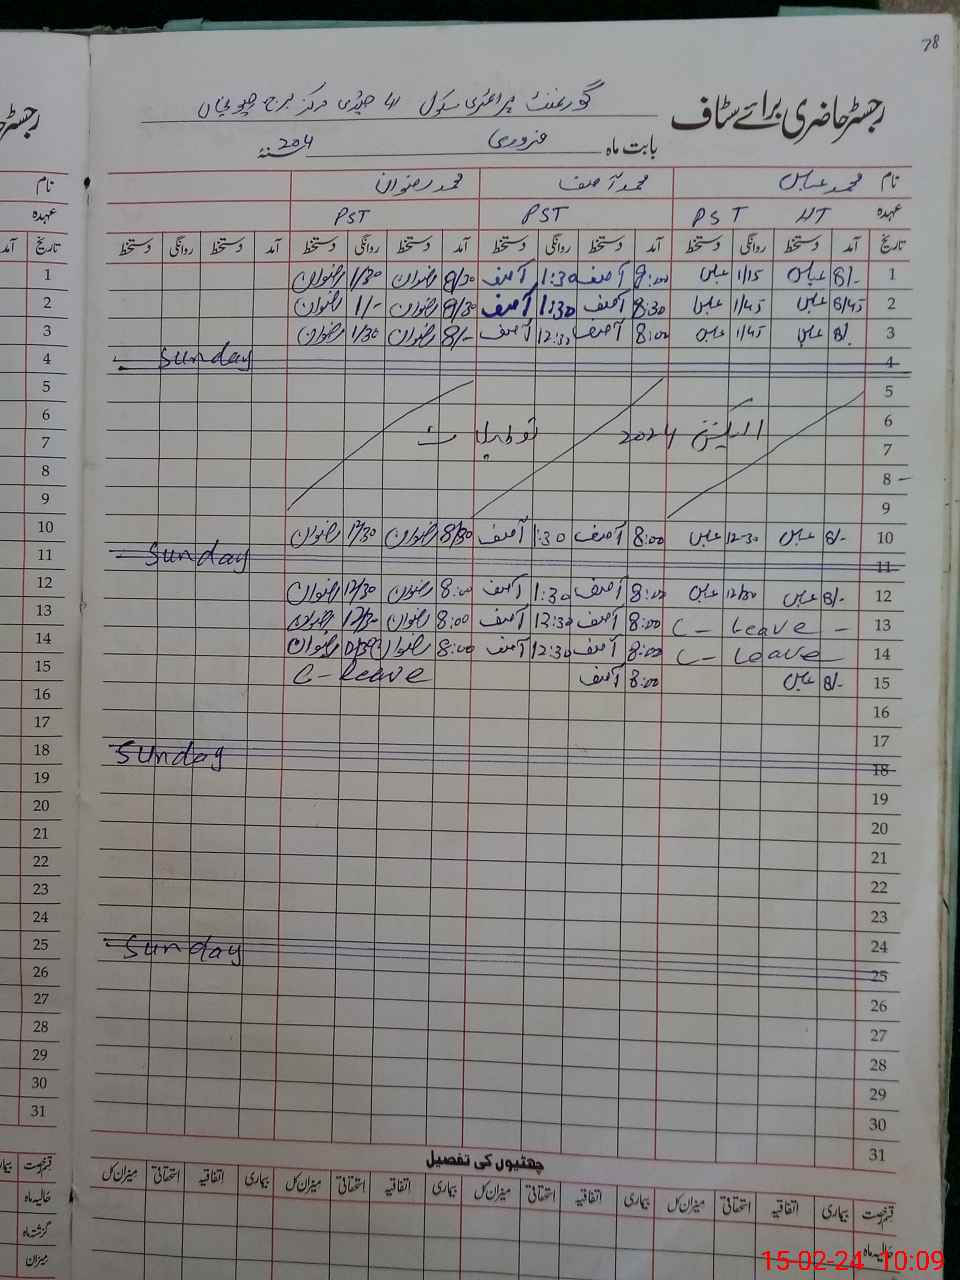 78
رجسٹر حاضری برائے سٹاف
گورنمنٹ پرائمری سکول مرکز
بابت ماہ فروری سنہ 204
نام محمد عباس محمد آصف محمد رضوان
عہدہ HT PST PST PST
تاریخ آمد دستخط روانگی دستخط آمد دستخط روانگی دستخط آمد دستخط روانگی دستخط آمد دستخط روانگی دستخط
1 8/- عباس 1/15 عباس 8:00 آصف 1:30 آصف 8/30 رضوان 1/30 رضوان
2 8/45 عباس 1/45 عباس 8:30 آصف 1:30 آصف 8/30 رضوان 1/- رضوان
3 8/. عباس 1/45 عباس 8:00 آصف 12:30 آصف 8/- رضوان 1/30 رضوان
4 Sunday
5
6
7 الیکشن 2024
8
9
10 8/- عباس 12-30 عباس 8:00 آصف 1:30 آصف 8/30 رضوان 12/30 رضوان
11 Sunday
12 8/- عباس 12/30 عباس 8:00 آصف 1:30 آصف 8:00 رضوان 12/30 رضوان
13 C- Leave - 8:00 آصف 12:30 آصف 8:00 رضوان 12/30 رضوان
14 C- Leave 8:00 آصف 12:30 آصف 8:00 رضوان رضوان
15 8/- عباس 8:00 آصف C-Leave
16
17
18 Sunday
19
20
21
22
23
24
25 Sunday
26
27
28
29
30
31
چھٹیوں کی تفصیل
قسم رخصت بیماری اتفاقیہ استحقاقی میزان کل بیماری اتفاقیہ استحقاقی میزان کل بیماری اتفاقیہ استحقاقی میزان کل بیماری اتفاقیہ استحقاقی میزان کل
حالیہ ماہ
15-02-24 10:09
رجسٹر
نام
عہدہ
تاریخ آمد
1
2
3
4
5
6
7
8
9
10
11
12
13
14
15
16
17
18
19
20
21
22
23
24
25
26
27
28
29
30
31
قسم رخصت
حالیہ ماہ
گزشتہ ماہ
میزان